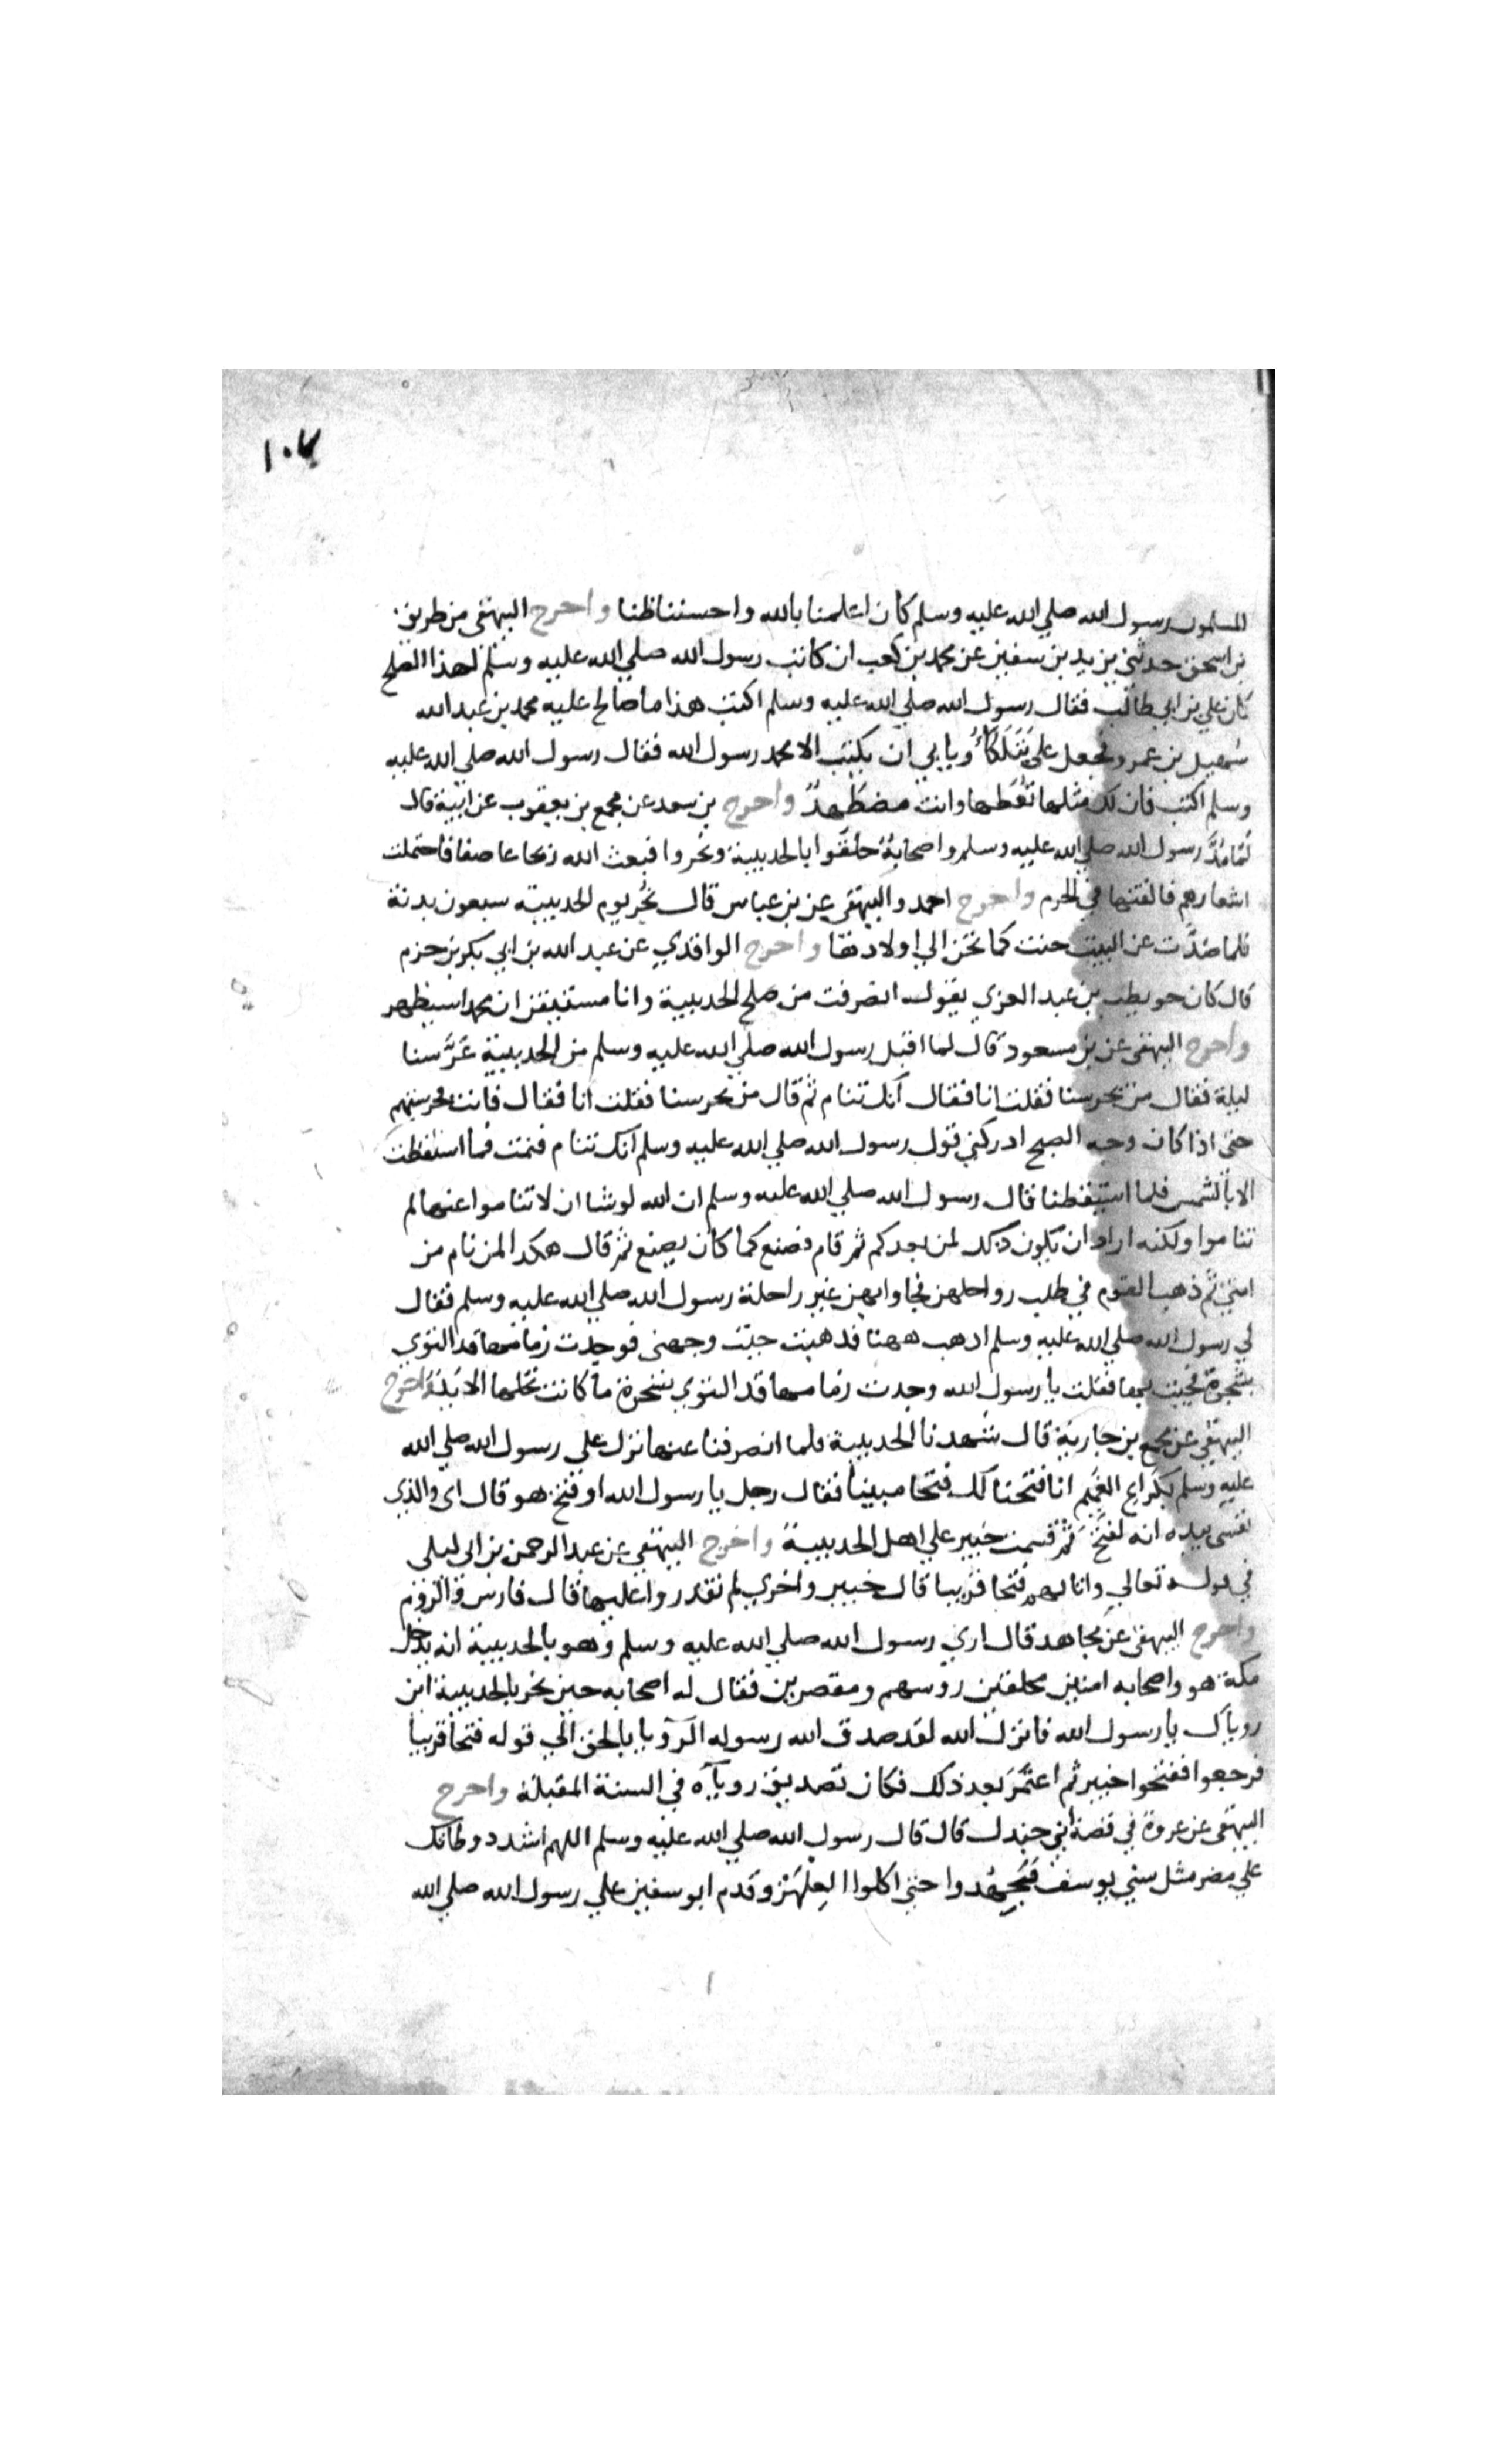 ١٠٧
المسلمون رسول الله صلي الله عليه وسلم كان اعلمنا بالله واحسننا ظنا واخرج البيهقي من طريق
بن اسحق حدثني يزيد بن سفين عن محمد بن كعب ان كاتب رسول الله صلي الله عليه وسلم لهذا الصلح
كان علي بن ابي طالب فقال رسول الله صلي الله عليه وسلم اكتب هذا ما صالح عليه محمد بن عبد الله
سهيل بن عمرو فجعل علي يتلكأ ويابي ان يكتب الا محمد رسول الله فقال رسول الله صلي الله عليه
وسلم اكتب فان لك مثلها تعطها وانت مضطهد واخرج بن سعد عن مجمع بن يعقوب عن ابيه قال
لما صد رسول الله صلي الله عليه وسلم واصحابه حلقوا بالحديبية ونحروا فبعث الله ريحا عاصفا فاحتملت
اشعارهم فالقتها في الحرم واخرج احمد والبيهقي عن بن عباس قال نحر يوم الحديبية سبعون بدنة
فلما صدت عن البيت حنت كما تحن الي اولادها واخرج الواقدي عن عبد الله بن ابي بكر بن حزم
قال كان حويطب بن عبد العزي يقول انصرفت من صلح الحديبية وانا مستيقن ان محمدا سيظهر
واخرج البيهقي عن بن مسعود قال لما اقبل رسول الله صلي الله عليه وسلم من الحديبية عرسنا
ليلة فقال من يحرسنا فقلت انا فقال انك تنام ثم قال من يحرسنا فقلت انا فقال فانت فحرستهم
حتي اذا كان وجه الصبح ادركني قول رسول الله صلي الله عليه وسلم انك تنام فنمت فما استيقظت
الا بالشمس فلما استيقظنا قال رسول الله صلي الله عليه وسلم ان الله لو شا ان لا تناموا عنها لم
تناموا ولكنه اراد ان يكون ذلك لمن بعدكم ثم قام فصنع كما كان يصنع ثم قال هكذا لمن نام من
امتي ثم ذهب القوم في طلب رواحلهن فجاوا بهن غير راحلة رسول الله صلي الله عليه وسلم فقال
لي رسول الله صلي الله عليه وسلم اذهب ههنا فذهبت حيث وجهني فوجدت زمامها قد التوي
بشجرة فجيت بها فقلت يا رسول الله وجدت زمامها قد التوي بشجرة ما كانت تحلها الا يد واخرج
البيهقي عن مجمع بن جارية قال شهدنا الحديبية فلما انصرفنا عنها نزل علي رسول الله صلي الله
عليه وسلم بكراع الغميم انا فتحنا لك فتحا مبينا فقال رجل يا رسول الله او فتح هو قال اي والذي
نفسي بيده انه لفتح ثم قسمت خيبر علي اهل الحديبية واخرج البيهقي عن عبد الرحمن بن ابي ليلي
في قوله تعالي واثابهم فتحا قريبا قال خيبر واخري لم تقدروا عليها قال فارس والروم
واخرج البيهقي عن مجاهد قال اري رسول الله صلي الله عليه وسلم وهو بالحديبية انه يدخل
مكة هو واصحابه امنين محلقين روسهم ومقصرين فقال له اصحابه حين نحر بالحديبية اين
روياك يا رسول الله فانزل الله لقد صدق الله رسوله الرويا بالحق الي قوله فتحا قريبا
فرجعوا ففتحوا خيبر ثم اعتمر بعد ذلك فكان تصديق روياه في السنة المقبلة واخرج
البيهقي عن عروة في قصة ابي جندل قال قال رسول الله صلي الله عليه وسلم اللهم اشدد وطاتك
علي مضر مثل سني يوسف فجهدوا حتي اكلوا العلهز وقدم ابو سفين علي رسول الله صلي الله